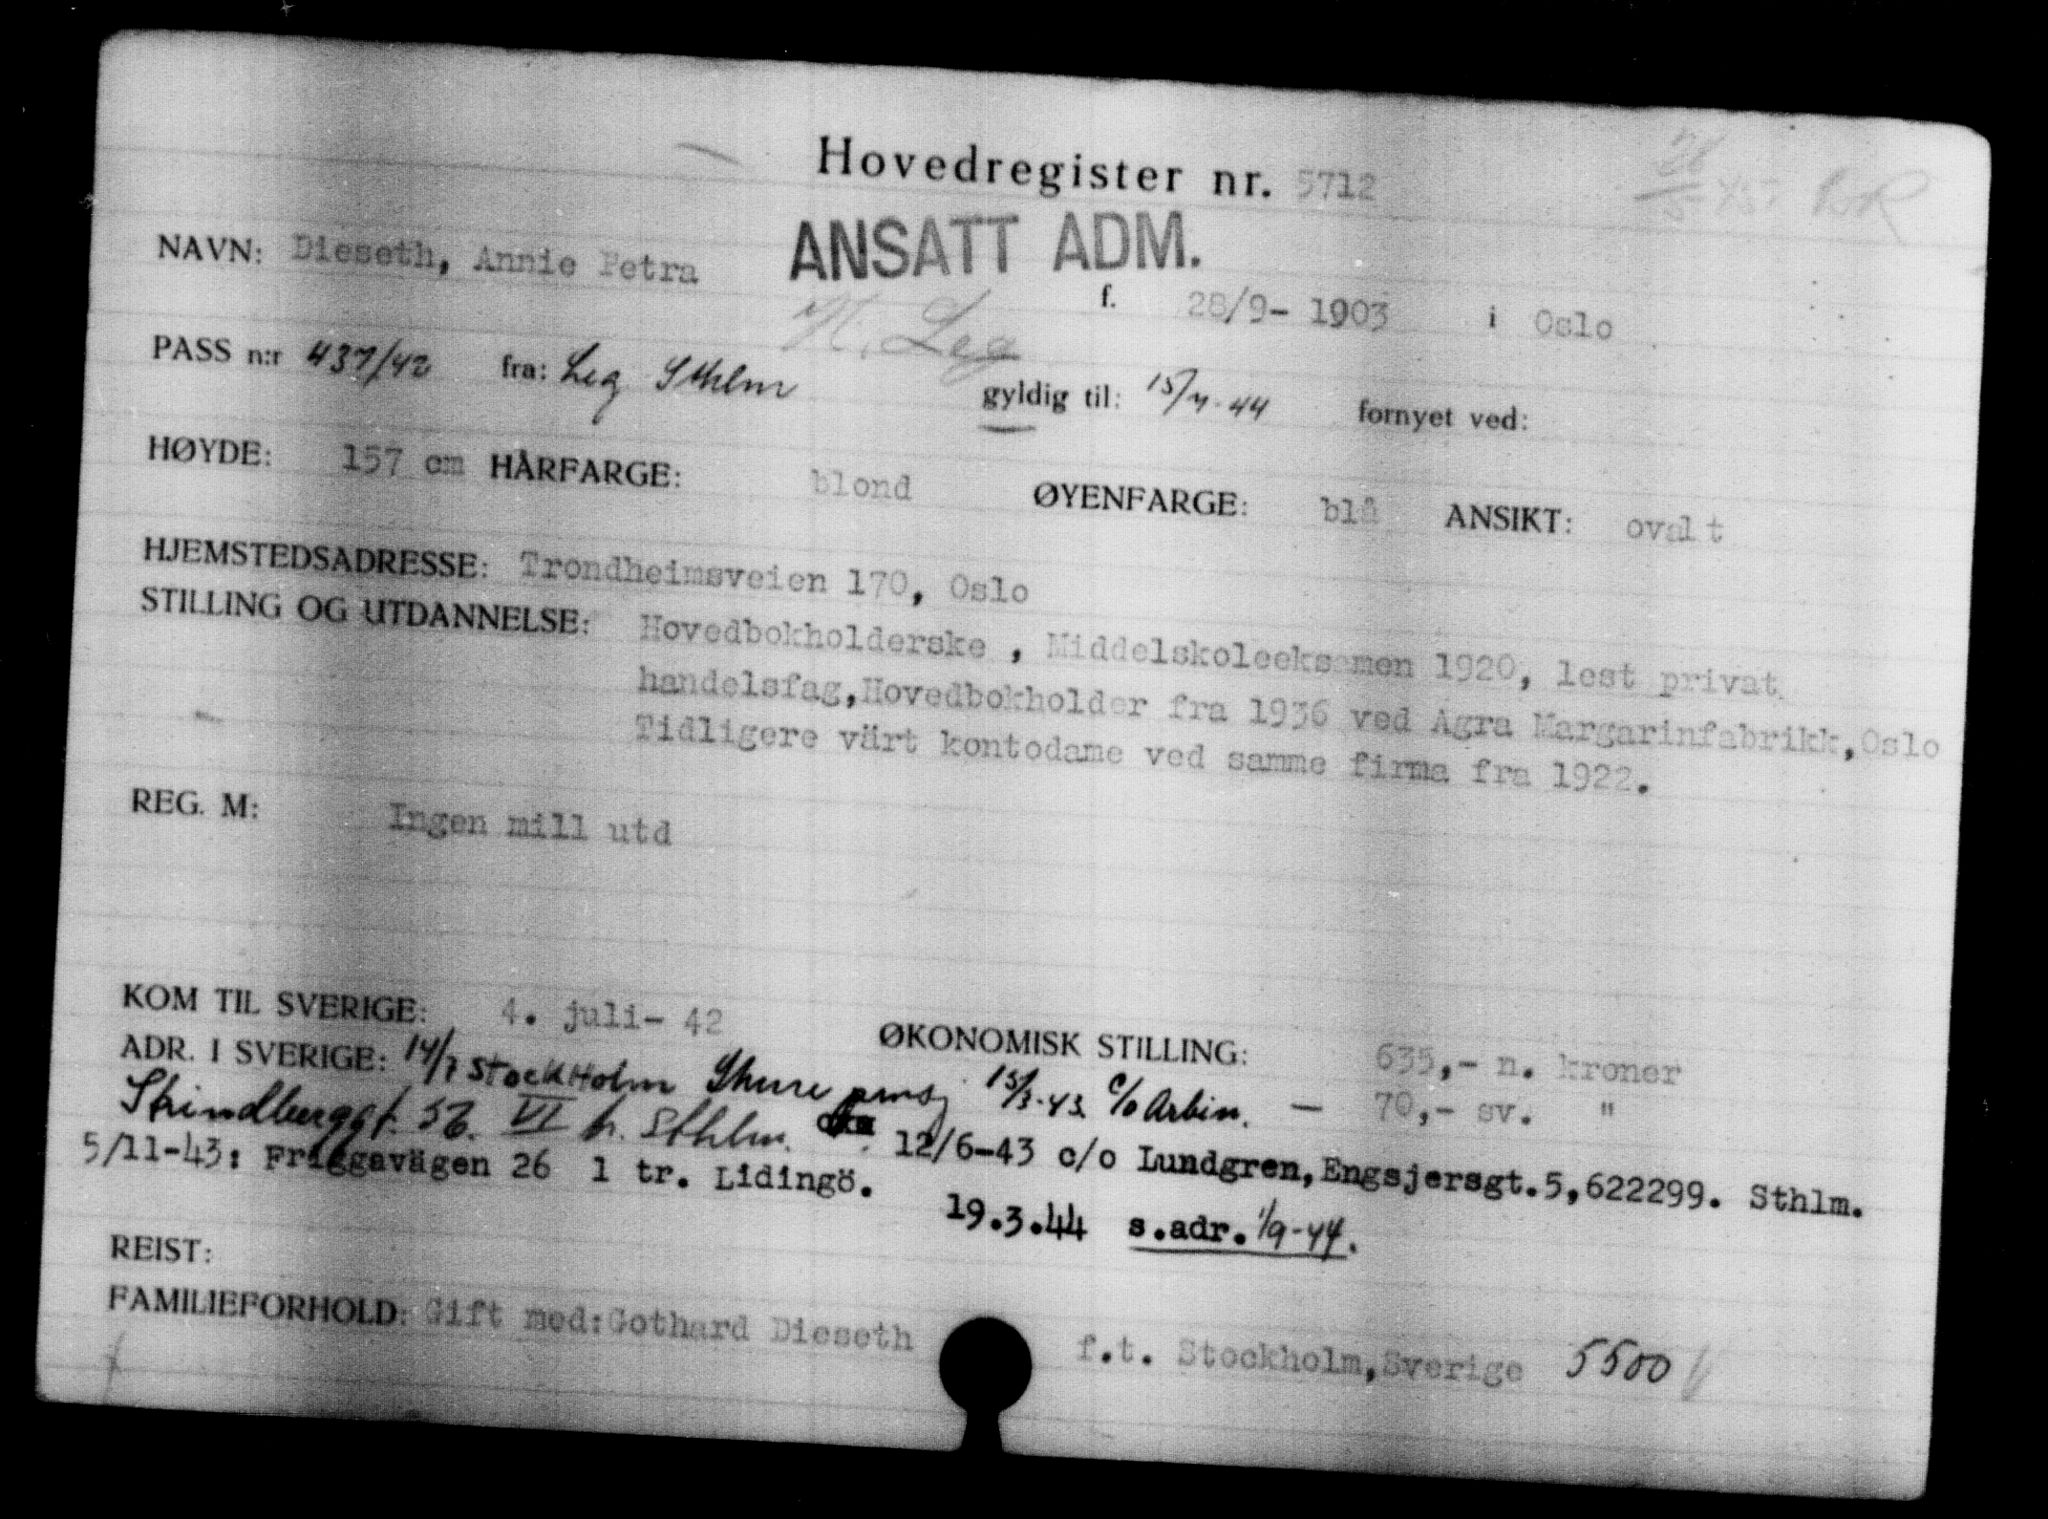 Hovedregister nr. 5712
ANSATT ADM.
NAVN: Dieseth, Annie Petra
f. 28/9- 1903 i Oslo
N. Leg
PASS n:r 437/42 fra: Leg Sthlm gyldig til: 15/7-44 fornyet ved:
HØYDE: 157 cm HÅRFARGE: blond ØYENFARGE: blå ANSIKT: ovalt
HJEMSTEDSADRESSE: Trondheimsveien 170, Oslo
STILLING OG UTDANNELSE: Hovedbokholderske , Middelskoleeksamen 1920, lest privat
handelsfag,Hovedbokholder fra 1936 ved Agra Margarinfabrikk,Oslo
Tidligere värt kontodame ved samme firma fra 1922.
REG. M: Ingen mill utd
KOM TIL SVERIGE: 4. juli- 42 ØKONOMISK STILLING: 635,- n. kroner
ADR. I SVERIGE: 14/7 Stockholm pensj 15/3-43 c/o Arbin. — 70,- sv. "
56. VI tr. Sthlm. 12/6-43 c/o Lundgren,Engsjersgt.5,622299. Sthlm.
5/11-43: Friggavägen 26 1 tr. Lidingö.
19.3.44 s.adr. 1/9-44.
REIST:
FAMILIEFORHOLD: Gift med:Gothard Dieseth f.t. Stockholm,Sverige 5500